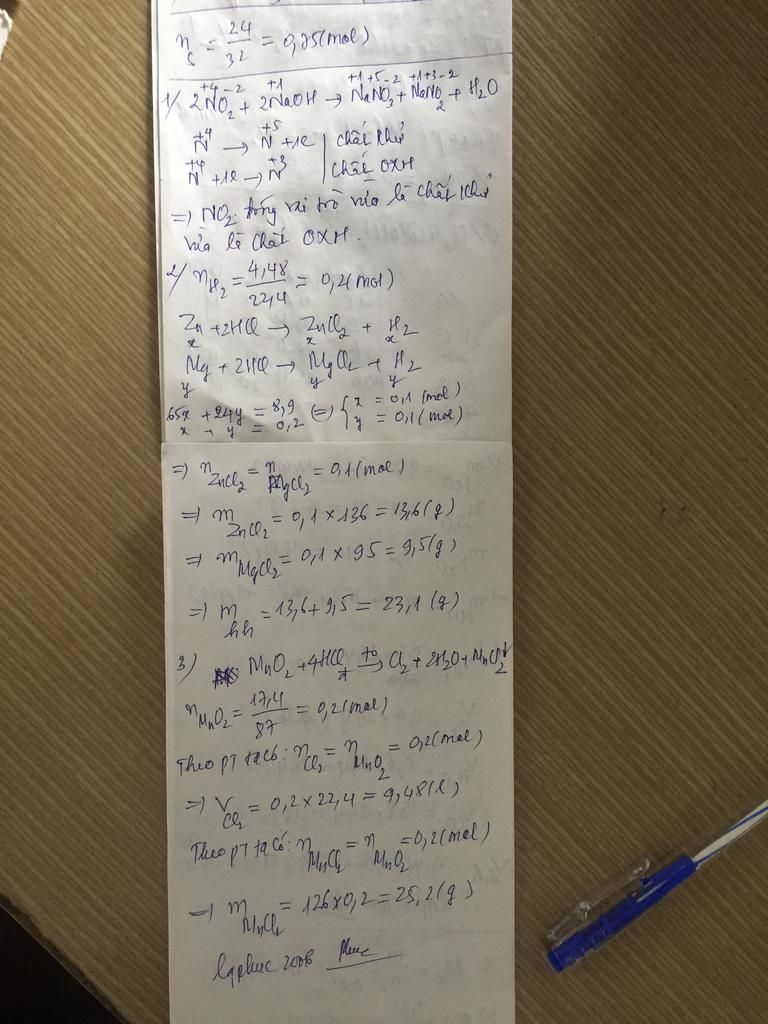 n_S = 24/32 = 0,75(mol)
1/ 2NO₂ + 2NaOH → NaNO₃ + NaNO₂ + H₂O
+4 -2 +1 +1 +5 -2 +1 +3 -2
N⁺⁴ → N⁺⁵ + 1e | chất khử
N⁺⁴ + 1e → N⁺³ | chất OXH
=> NO₂ đóng vai trò vừa là chất khử
vừa là chất OXH.
2/ n_H₂ = 4,48/22,4 = 0,2(mol)
Zn + 2HCl → ZnCl₂ + H₂
x x x
Mg + 2HCl → MgCl₂ + H₂
y y y
65x + 24y = 8,9 (=) { x = 0,1 (mol)
x + y = 0,2 y = 0,1 (mol)
=> n_ZnCl₂ = n_MgCl₂ = 0,1(mol)
=> m_ZnCl₂ = 0,1 × 136 = 13,6(g)
=> m_MgCl₂ = 0,1 × 95 = 9,5(g)
=> m_hh = 13,6 + 9,5 = 23,1 (g)
3) MnO₂ + 4HCl →(t°) Cl₂ + 2H₂O + MnCl₂
n_MnO₂ = 17,4/87 = 0,2(mol)
Theo pt ta có: n_Cl₂ = n_MnO₂ = 0,2(mol)
=> V_Cl₂ = 0,2 × 22,4 = 4,48(l)
Theo pt ta có: n_MnCl₂ = n_MnO₂ = 0,2(mol)
=> m_MnCl₂ = 126 × 0,2 = 25,2(g)
lqphuc 2006 Phuc